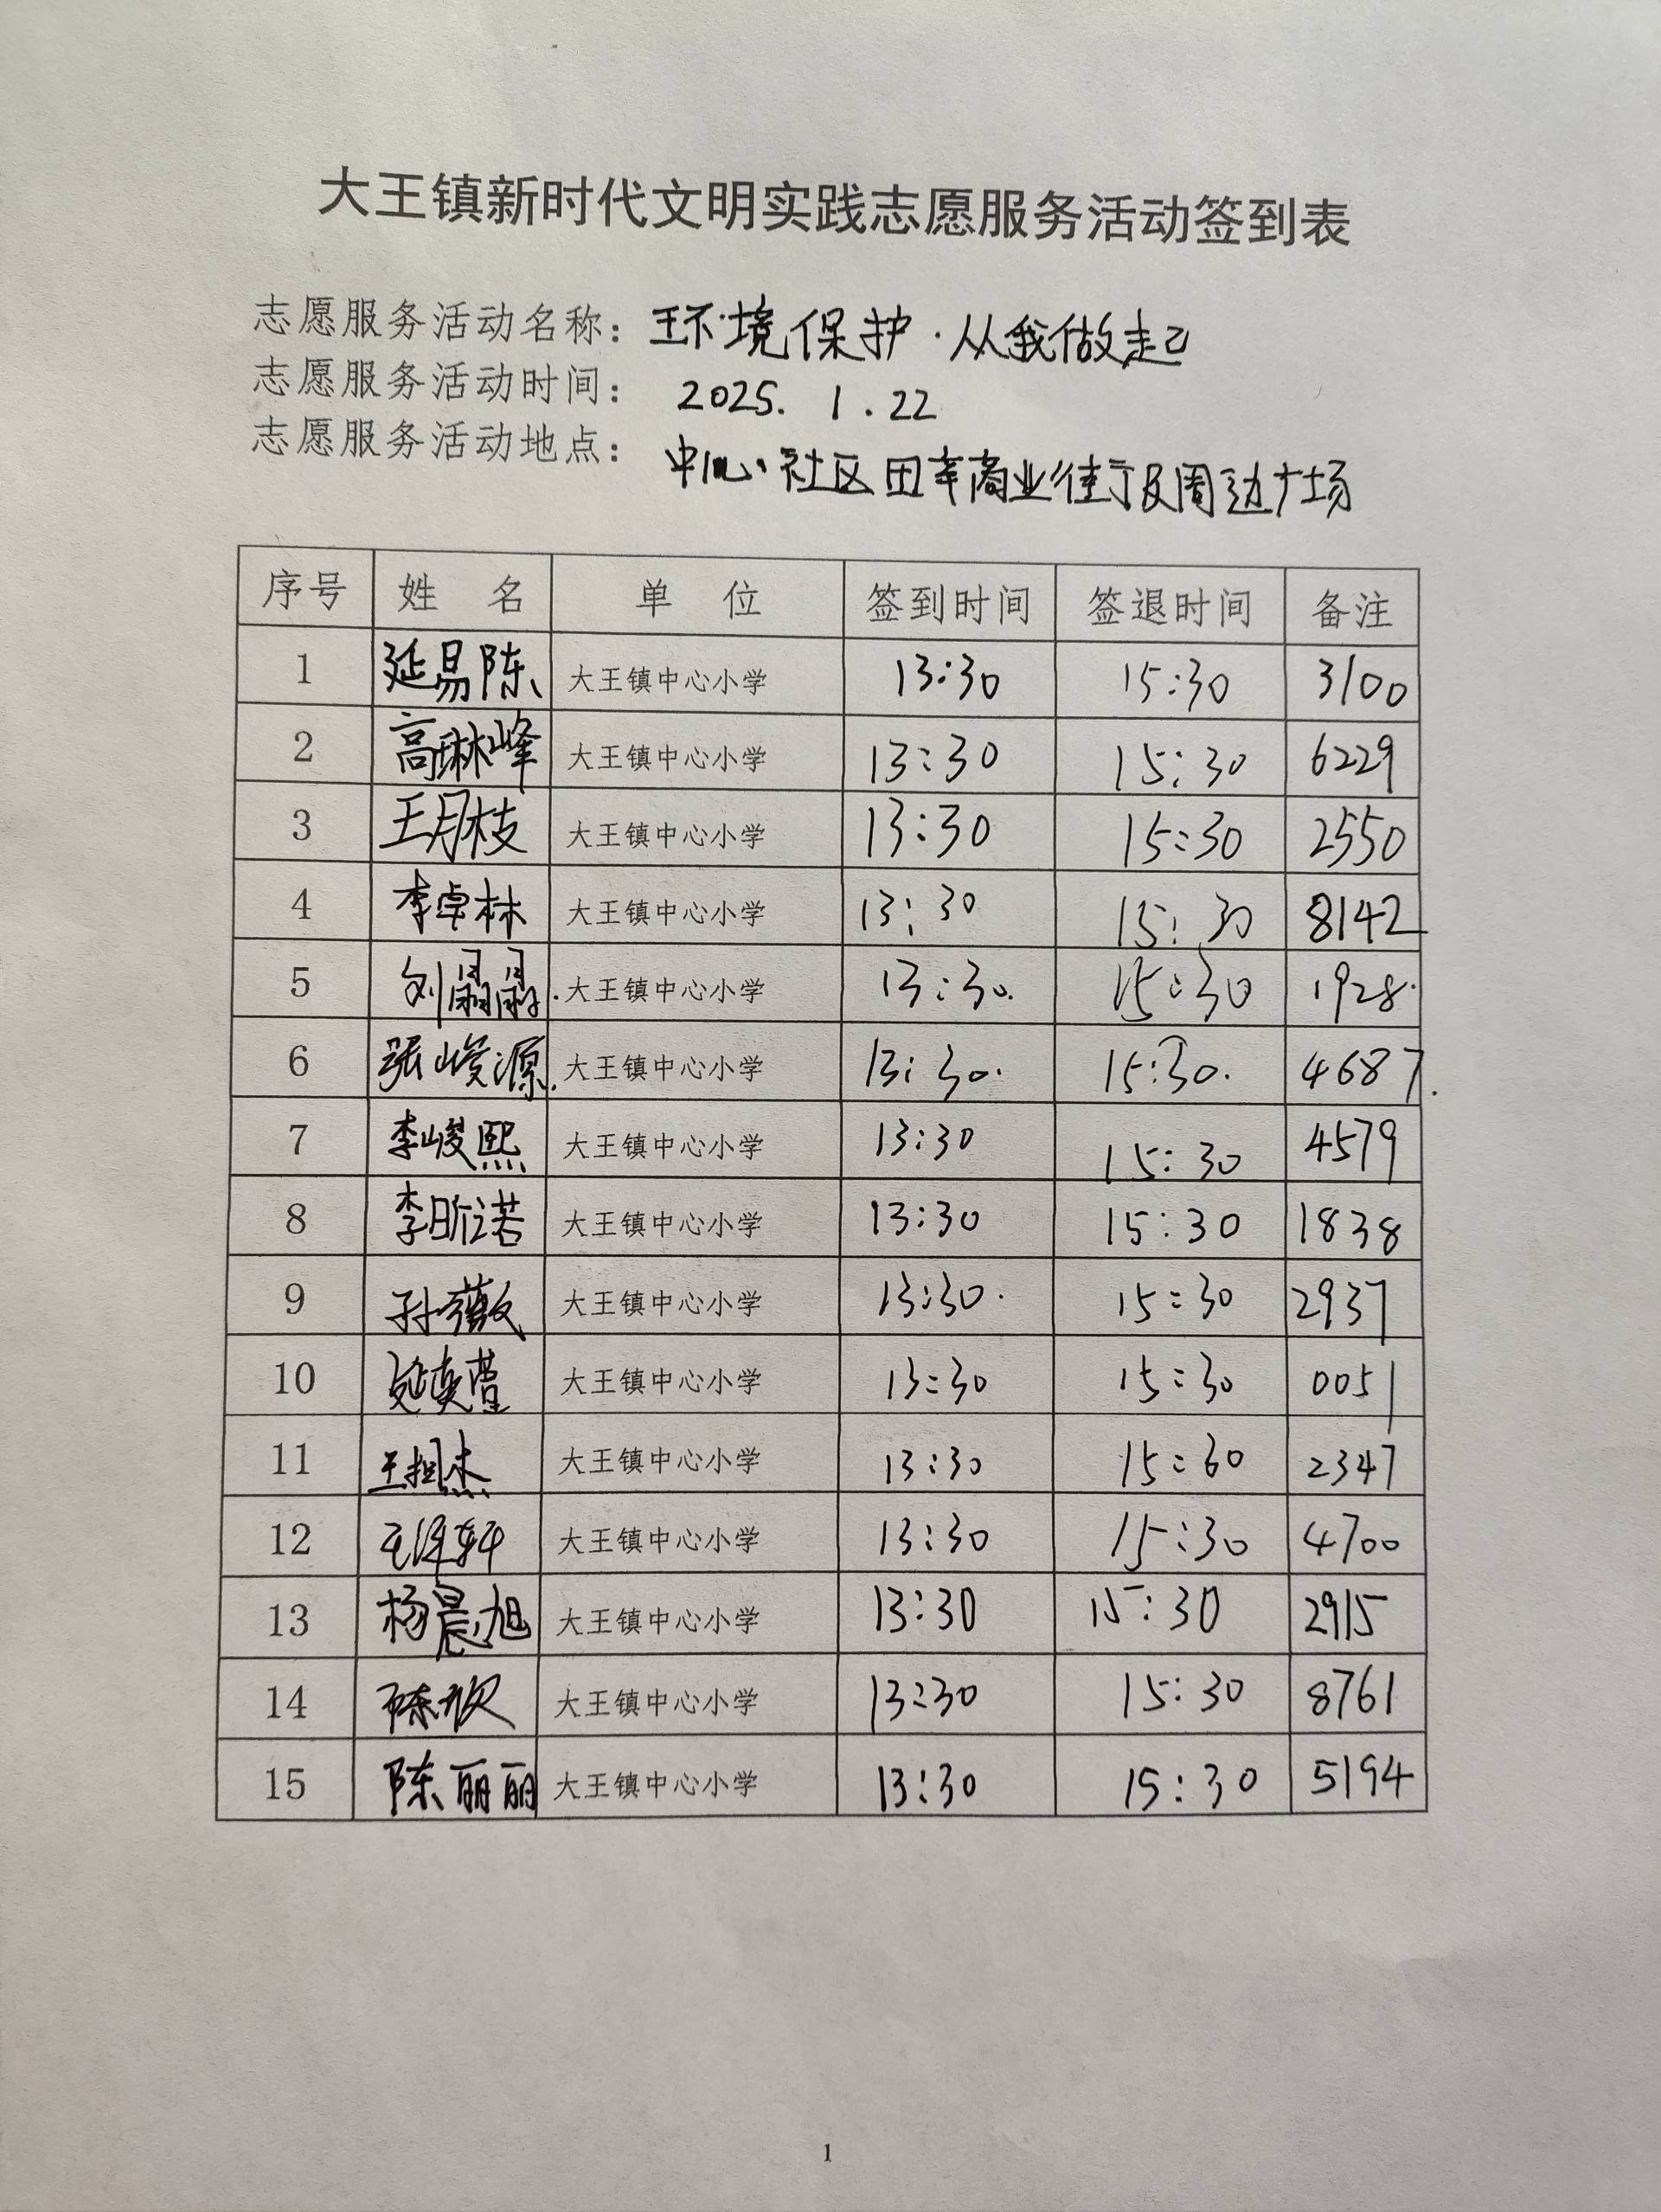 大王镇新时代文明实践志愿服务活动签到表
志愿服务活动名称：环境保护·从我做起
志愿服务活动时间：2025.1.22
志愿服务活动地点：中心社区田辛商业街及周边广场
序号 姓 名 单 位 签到时间 签退时间 备注
1 延易陈 大王镇中心小学 13:30 15:30 3100
2 高琳峰 大王镇中心小学 13:30 15:30 6229
3 王月枝 大王镇中心小学 13:30 15:30 2550
4 李卓林 大王镇中心小学 13:30 15:30 8142
5 刘 大王镇中心小学 13:30. 15:30 1928.
6 张峻源. 大王镇中心小学 13:30. 15:30. 4687.
7 李峻熙 大王镇中心小学 13:30 15:30 4579
8 李昕诺 大王镇中心小学 13:30 15:30 1838
9 孙薇 大王镇中心小学 13:30. 15:30 2937
10 延 大王镇中心小学 13:30 15:30 0051
11 王 杰 大王镇中心小学 13:30 15:30 2347
12 王泽轩 大王镇中心小学 13:30 15:30 4700
13 杨晨旭 大王镇中心小学 13:30 15:30 2915
14 陈欣 大王镇中心小学 13:30 15:30 8761
15 陈丽丽 大王镇中心小学 13:30 15:30 5194
1